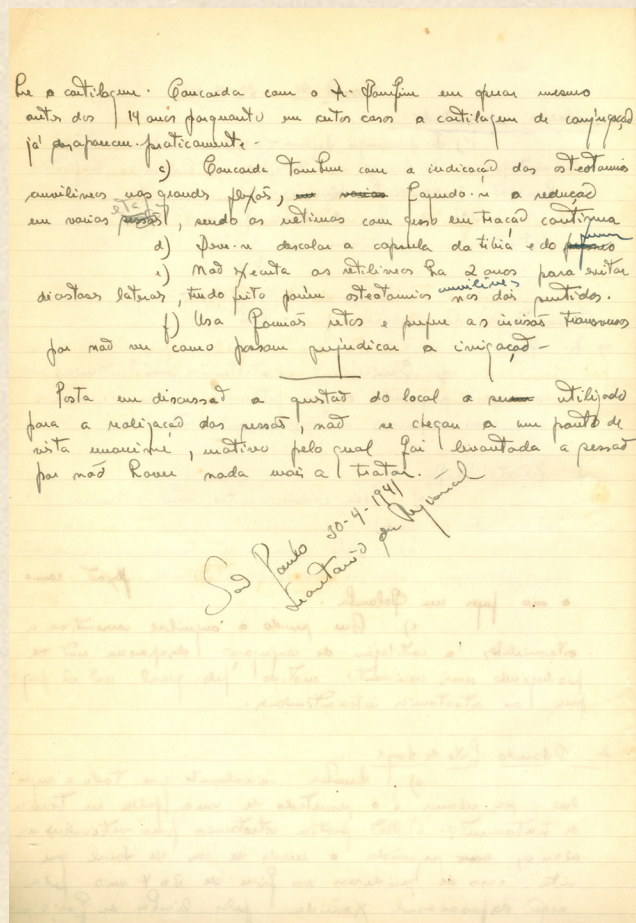 bre a cartilagem. Concorda com o Dr. Bomfim em operar mesmo
antes dos 14 anos porquanto em certos casos a cartilagem de conjugação
já desapareceu praticamente -
c) Concorda tambem com a indicação das osteotomias
cuvilineas nas grandes flexões, em varias fazendo-se a redução
em varias etapas, sendo as ultimas com gesso em tração continua
d) Deve-se descolar a capsula da tibia e do femur
e) Não executa as retilineas ha 2 anos para evitar
diastases laterais, tendo feito porém osteotomias cuvilineas nos dois sentidos.
f) Usa formões retos e prefere as incisões transversas
por não ver como possam prejudicar a irrigação -
Posta em discussão a questão do local a ser utilizado
para a realização das sessões, não se chegou a um ponto de
vista unanime, motivo pelo qual foi levantada a sessão
por não haver nada mais a tratar.
São Paulo 30-4-1941
Secretario